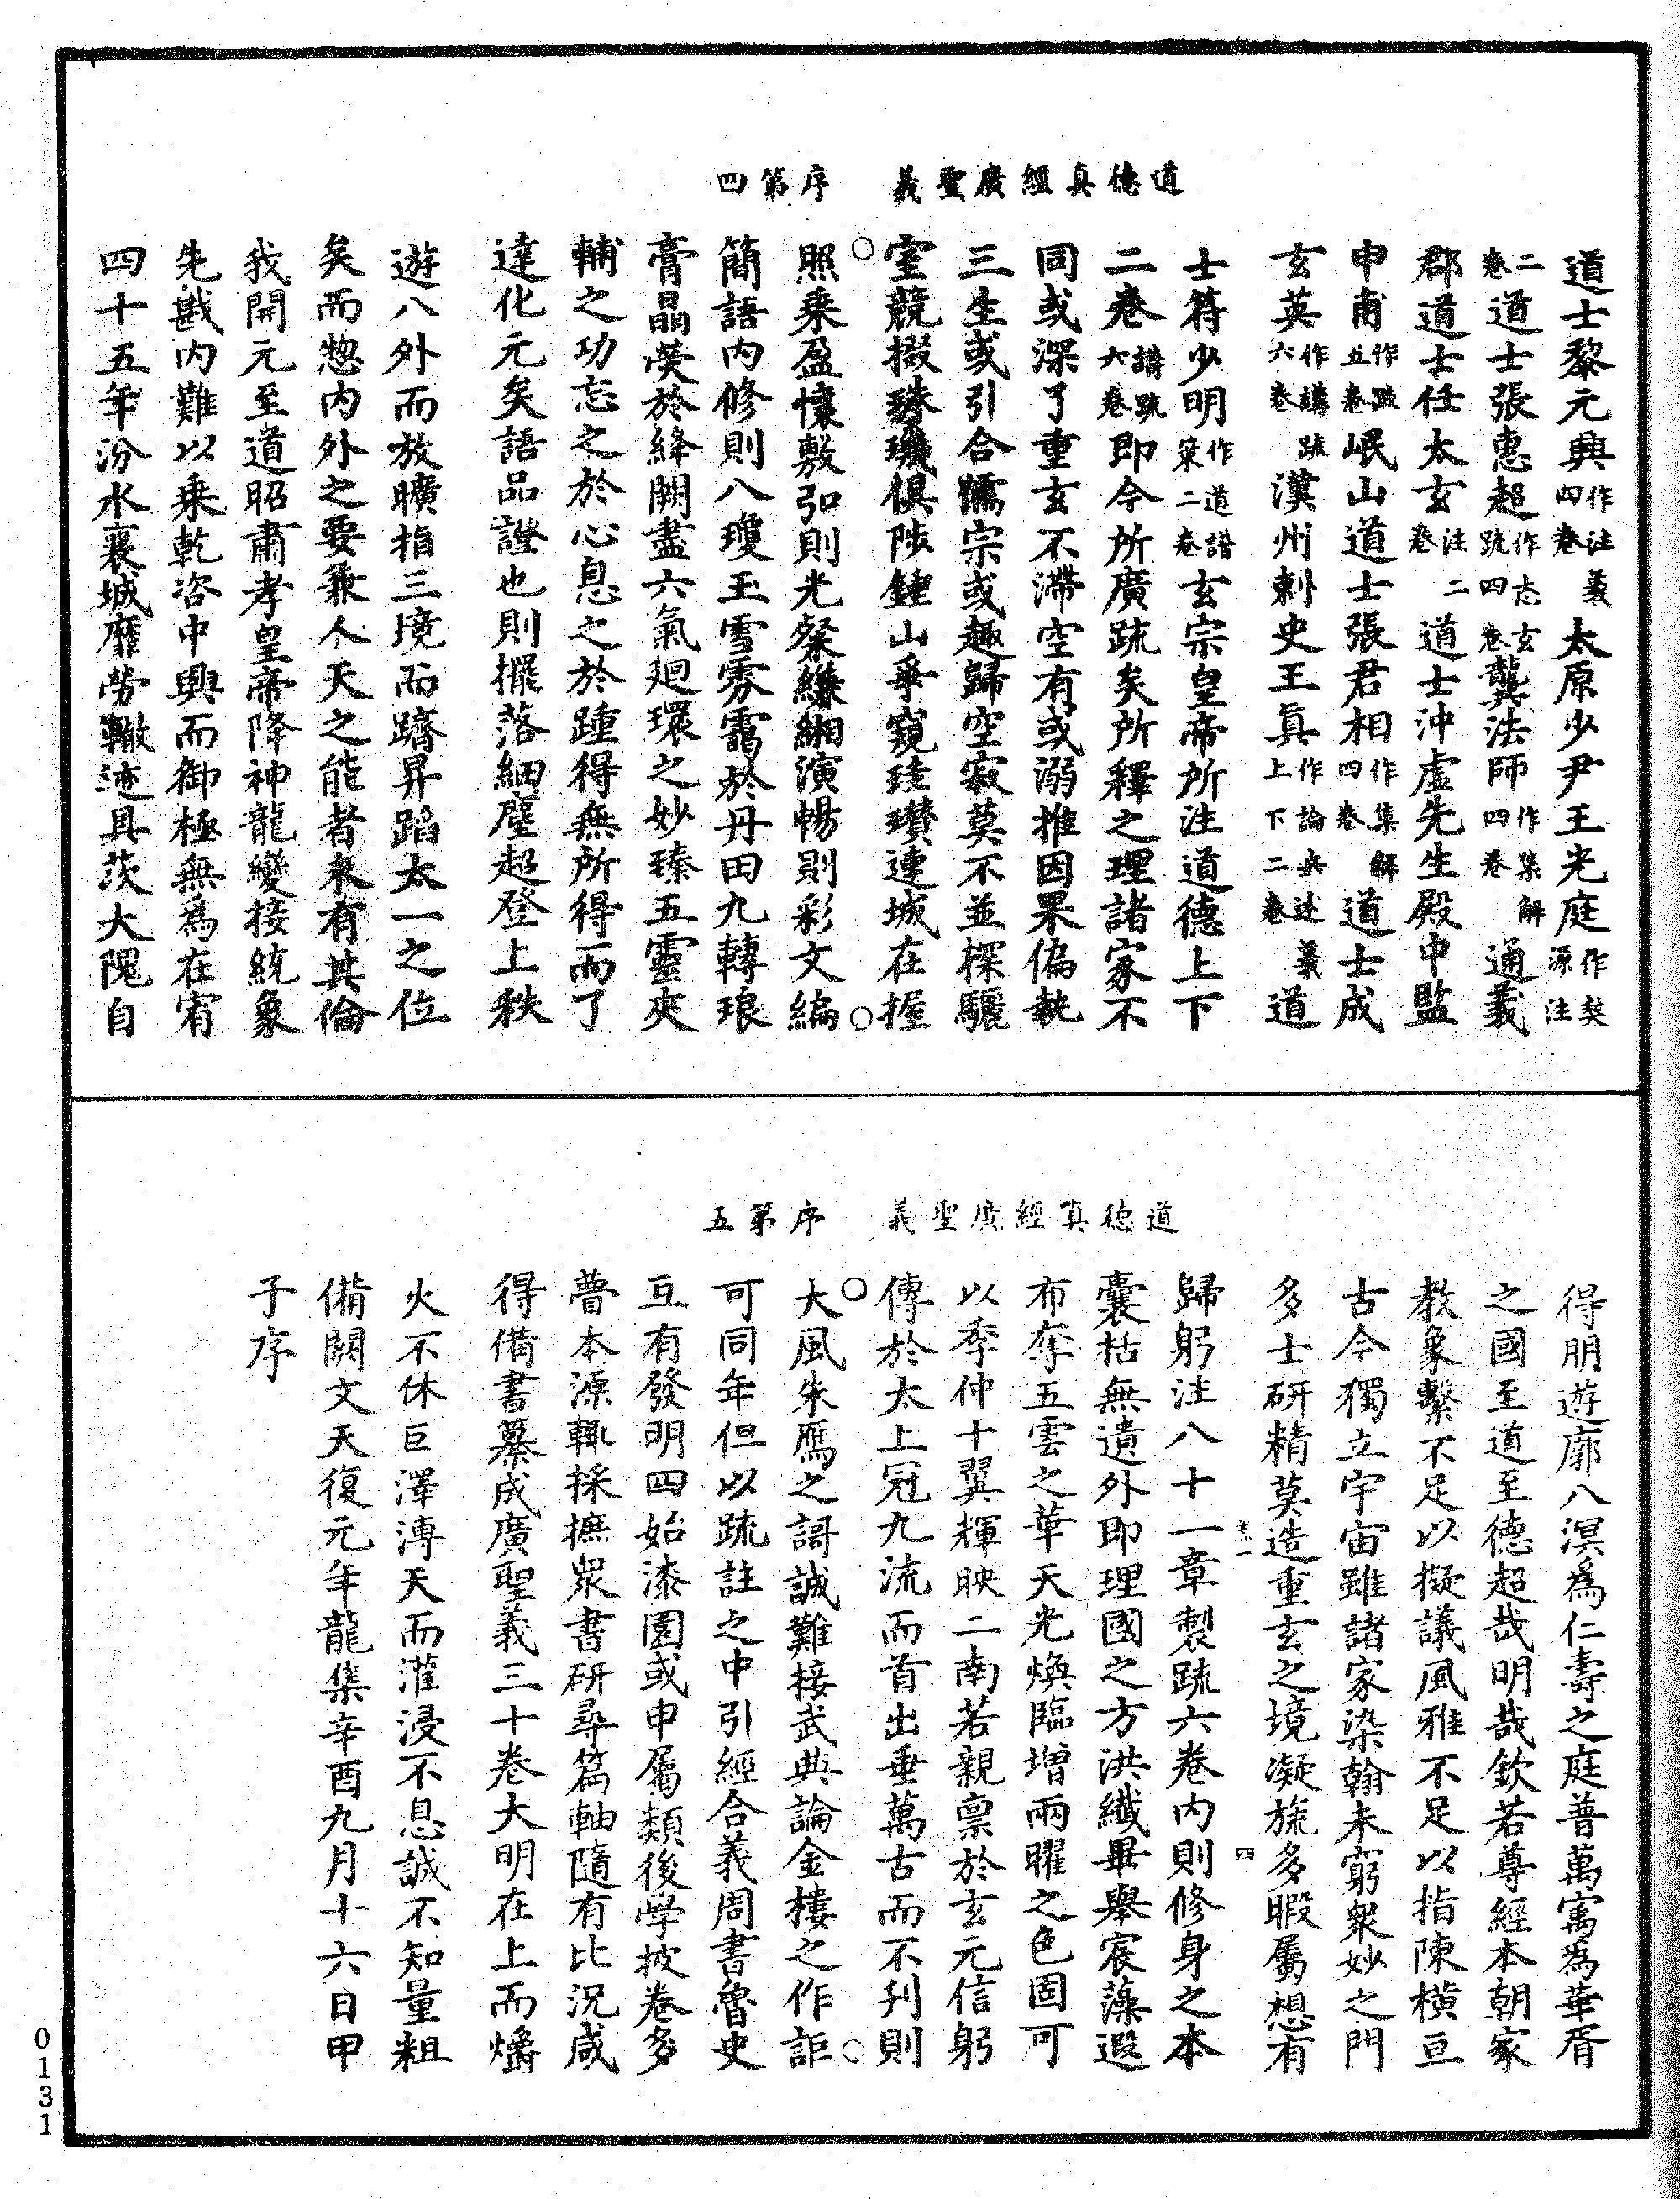 道德真經廣聖義 序第四
道士黎元興作注義四卷太原少尹王光庭作契源注
二卷道士張惠超作志玄疏四卷龔法師作集解四卷通義
郡道士任太玄注二卷道士沖虛先生殿中監
申甫作疏五卷岷山道士張君相作集解四卷道士成
玄英作講疏六卷漢州刺史王真作論兵述義上下二卷道
士符少明作道譜策二卷玄宗皇帝所注道德上下
二卷講疏六卷即今所廣疏矣所釋之理諸家不
同或深了重玄不滯空有或溺推因果偏執
三生或引合儒宗或趣歸空寂莫不並探驪
室競掇珠璣俱陟鍾山爭窺珪瓚連城在握
照乘盈懷敷弘則光粲縑緗演暢則彩文編
簡語內修則八瓊玉雪雰靄於丹田九轉琅
膏晶熒於絳闕盡六氣廻環之妙臻五靈夾
輔之功忘之於心息之於踵得無所得而了
達化元矣語品證也則擺落細塵超登上秩
遊八外而放曠指三境而躋昇蹈太一之位
矣而惣內外之要兼人天之能者未有其倫
我開元至道昭肅孝皇帝降神龍變接統象
先戡內難以乘乾咨中興而御極無為在宥
四十五年汾水襄城靡勞轍迹具茨大隗自
道德真經廣聖義 序第五
得朋遊廓八溟為仁壽之庭普萬㝢為華胥
之國至道至德超哉明哉欽若尊經本朝家
教象繫不足以擬議風雅不足以指陳橫亘
古今獨立宇宙雖諸家染翰未窮衆妙之門
多士研精莫造重玄之境凝旒多暇屬想有
歸躬注八十一章製疏六卷內則修身之本
囊括無遺外即理國之方洪纖畢舉宸藻遐
布奪五雲之華天光煥臨增兩曜之色固可
以季仲十翼輝映二南若親稟於玄元信躬
傳於太上冠九流而首出垂萬古而不刋則
大風朱鴈之謌誠難接武典論金樓之作詎
可同年但以疏註之中引經合義周書魯史
互有發明四始漆園或申屬類後學披卷多
瞢本源輒採摭衆書研尋篇軸隨有比況咸
得備書纂成廣聖義三十卷大明在上而爝
火不休巨澤溥天而灌浸不息誠不知量粗
備闕文天復元年龍集辛酉九月十六日甲
子序
四
0131